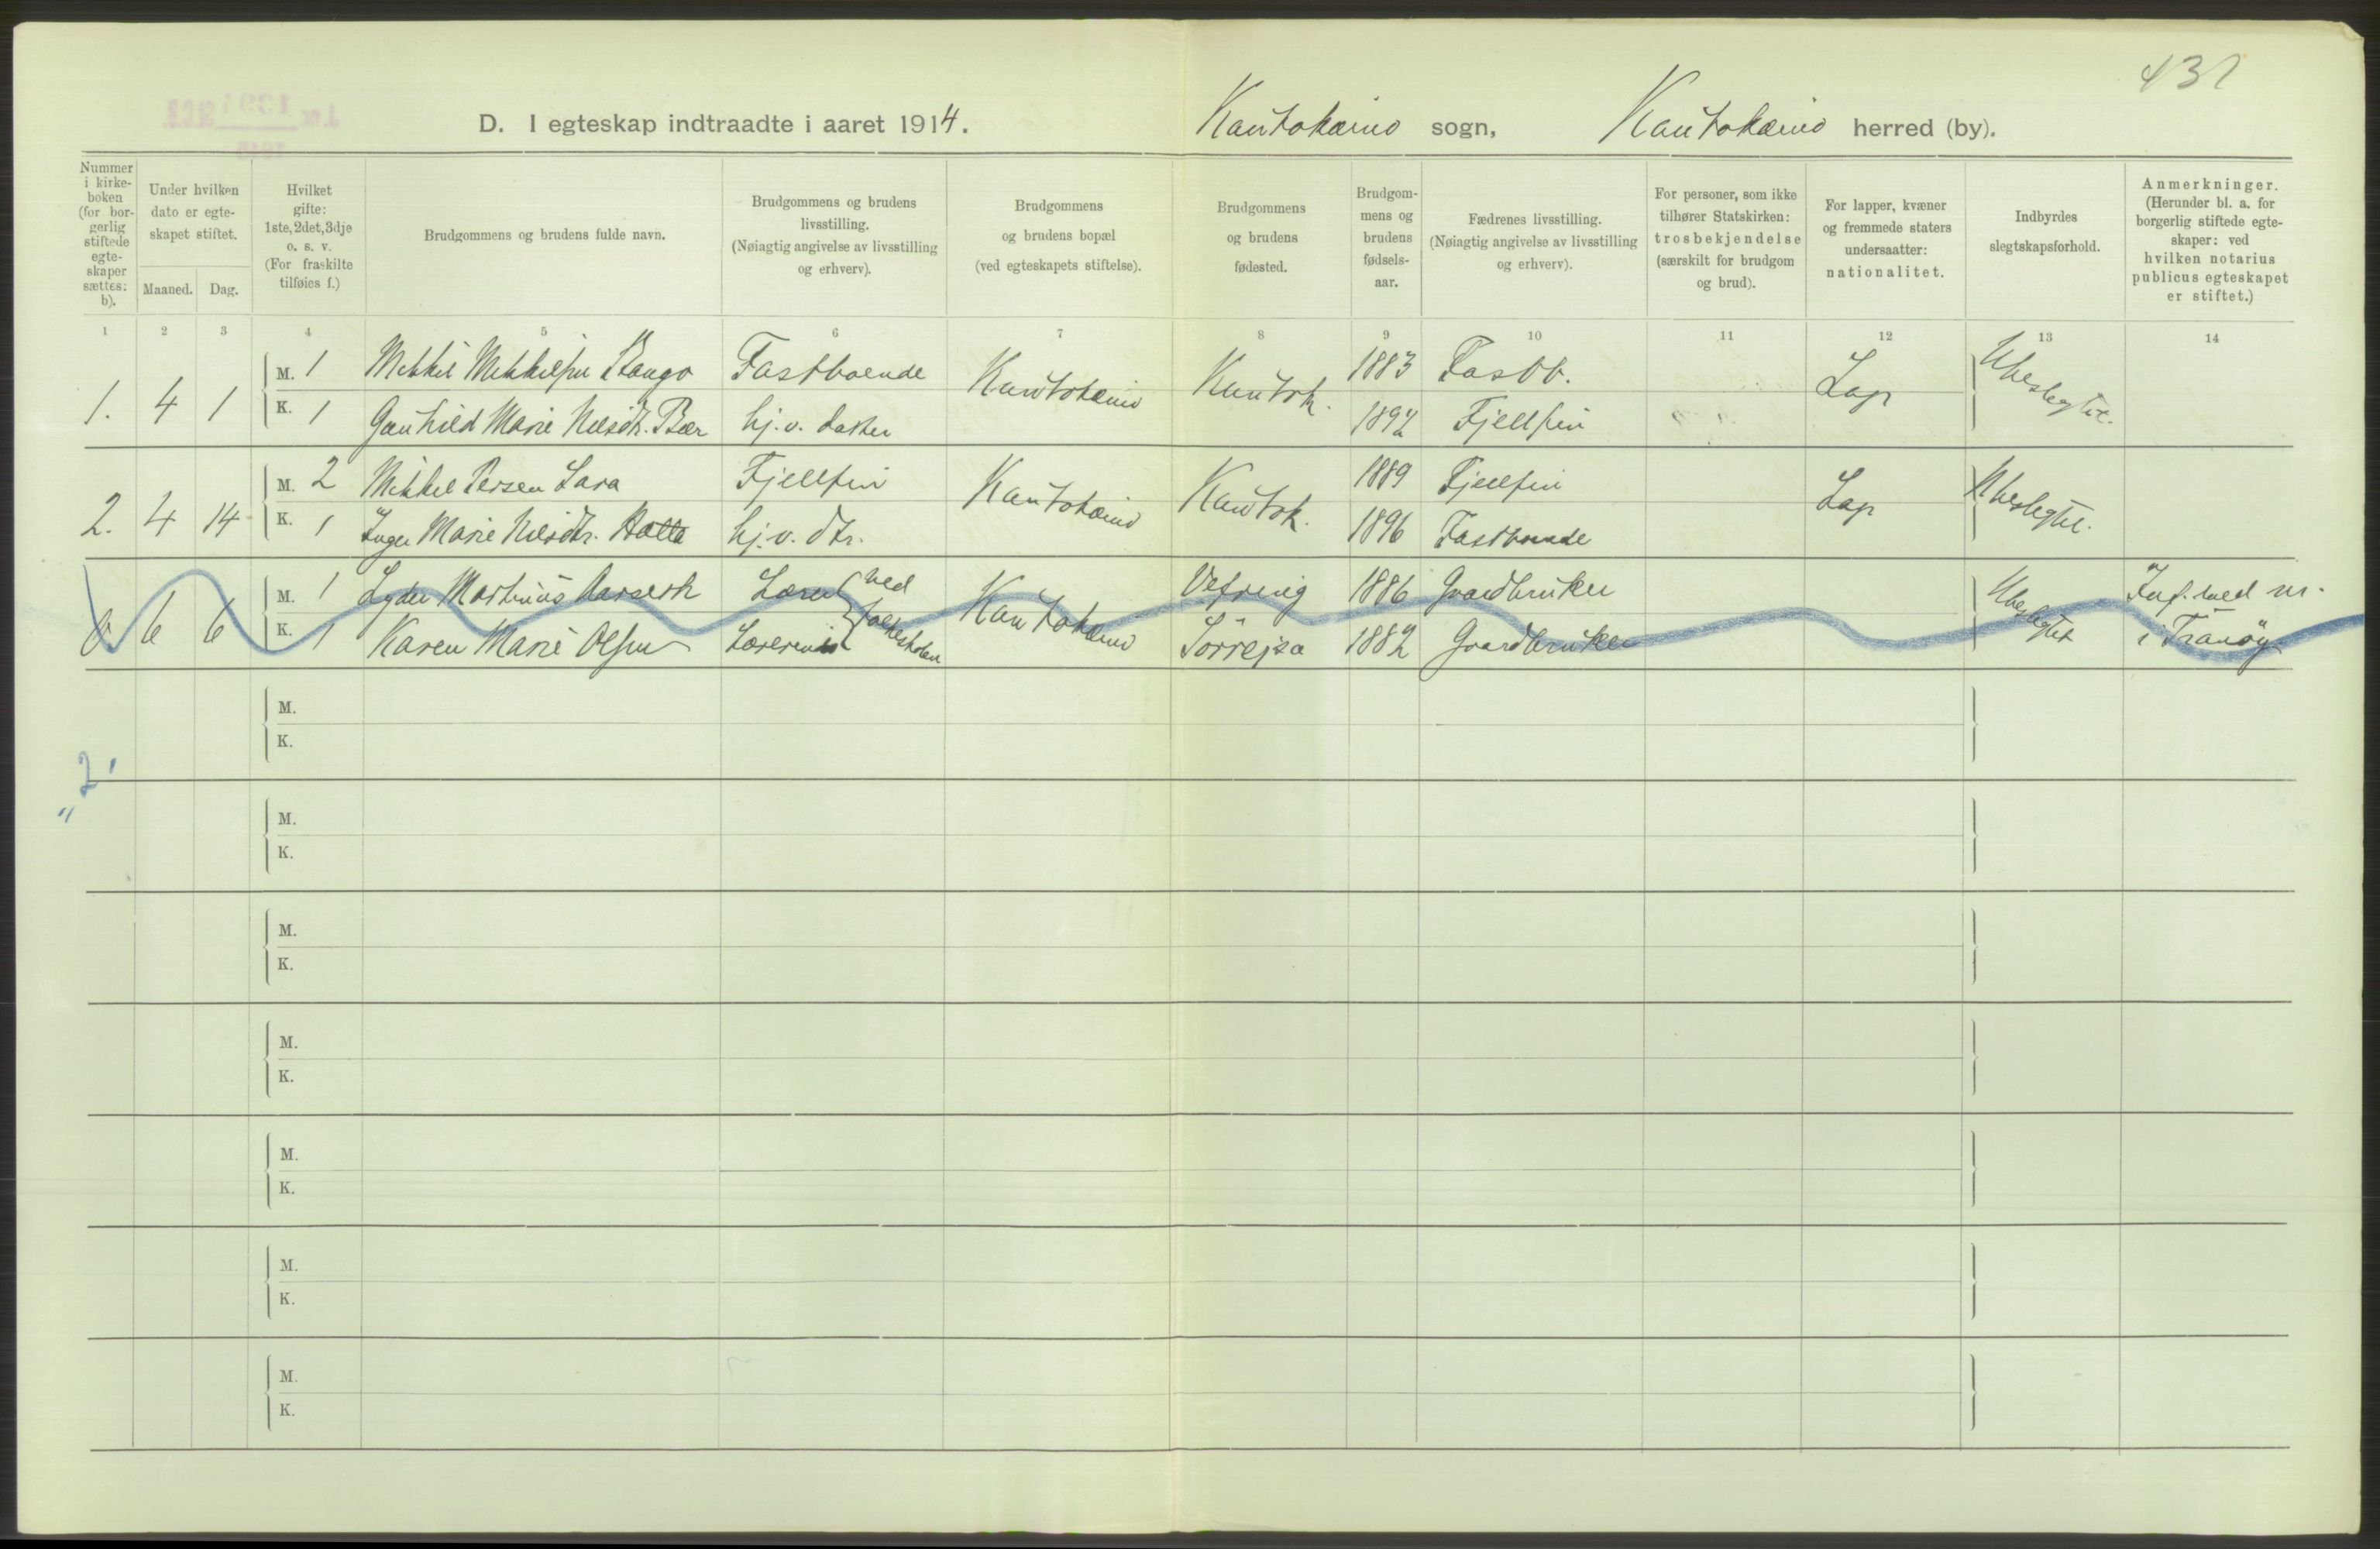 431
D. I egteskap indtraadte i aaret 1914. Kautokeino sogn, Kautokeino herred (by).
Nummer i kirke-boken (for bor-gerlig stiftede egte-skaper sættes: b).
Under hvilken dato er egte-skapet stiftet.
Maaned. Dag.
Hvilket gifte: 1ste, 2det, 3dje o. s. v. (For fraskilte tilføies f.)
Brudgommens og brudens fulde navn.
Brudgommens og brudens livsstilling. (Nøiagtig angivelse av livsstilling og erhverv).
Brudgommens og brudens bopæl (ved egteskapets stiftelse).
Brudgommens og brudens fødested.
Brudgom-mens og brudens fødsels-aar.
Fædrenes livsstilling. (Nøiagtig angivelse av livsstilling og erhverv).
For personer, som ikke tilhører Statskirken: trosbekjendelse (særskilt for brudgom og brud).
For lapper, kvæner og fremmede staters undersaatter: nationalitet.
Indbyrdes slegtskapsforhold.
Anmerkninger. (Herunder bl. a. for borgerlig stiftede egte-skaper: ved hvilken notarius publicus egteskapet er stiftet.)
1 2 3 4 5 6 7 8 9 10 11 12 13 14
1. 4 1 M. 1 Mikkel Mikkelsen Fastboende Kautokeino Kautok. 1883 Fastb. Lap Ubeslegtet.
K. 1 Gunhild Marie Nilsdtr. Bær hj.v. datter 1892 Fjellfin
2. 4 14 M. 2 Mikkel Persen Sara Fjellfin Kautokeino Kautok. 1889 Fjellfin Lap Ubeslegtet.
K. 1 Inger Marie Nilsdtr. Hætta hj.v. dtr. 1896 Fastboende
6 6 M. 1 Lyder Martinus Lærer ved folkeskolen Kautokeino Vefsn 1886 Gaardbruker Ubeslegtet Inf. med nr.
K. 1 Karen Marie Olsen Lærerinde Sørreisa 1882 Gaardbruker i Tranøy
M.
K.
2
M.
K.
M.
K.
M.
K.
M.
K.
M.
K.
M.
K.